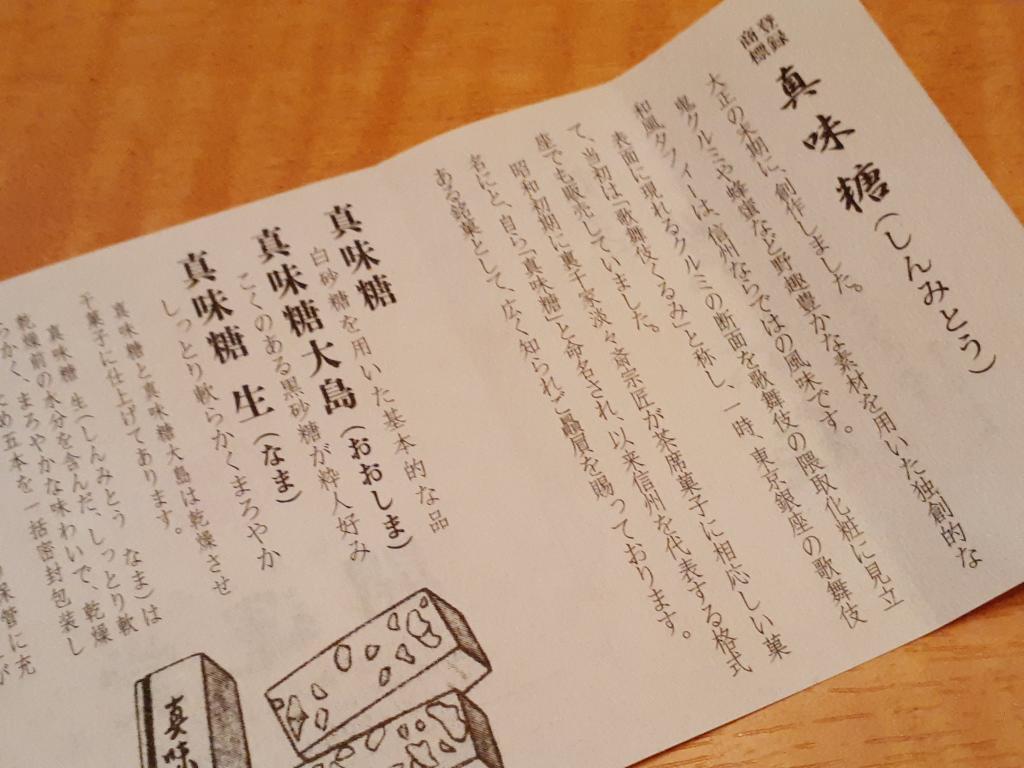 登録
商標
真味糖(しんみとう)
大正の末期に、創作しました。
鬼クルミや蜂蜜など野趣豊かな素材を用いた独創的な
和風タフィーは、信州ならではの風味です。
表面に現れるクルミの断面を歌舞伎の隈取化粧に見立
て、当初は「歌舞伎くるみ」と称し、一時、東京銀座の歌舞伎
座でも販売していました。
昭和初期に裏千家淡々斎宗匠が茶席菓子に相応しい菓
名にと、自ら「真味糖」と命名され、以来信州を代表する格式
ある銘菓として、広く知られご贔屓を賜っております。
真味糖
白砂糖を用いた基本的な品
真味糖大島(おおしま)
こくのある黒砂糖が粋人好み
真味糖 生(なま)
しっとり軟らかくまろやか
真味糖と真味糖大島は乾燥させ
干菓子に仕上げてあります。
真味糖 生(しんみとう なま)は
乾燥前の水分を含んだ、しっとり軟
らかく、まろやかな味わいで、乾燥
ため五本を一括密封包装し
真味